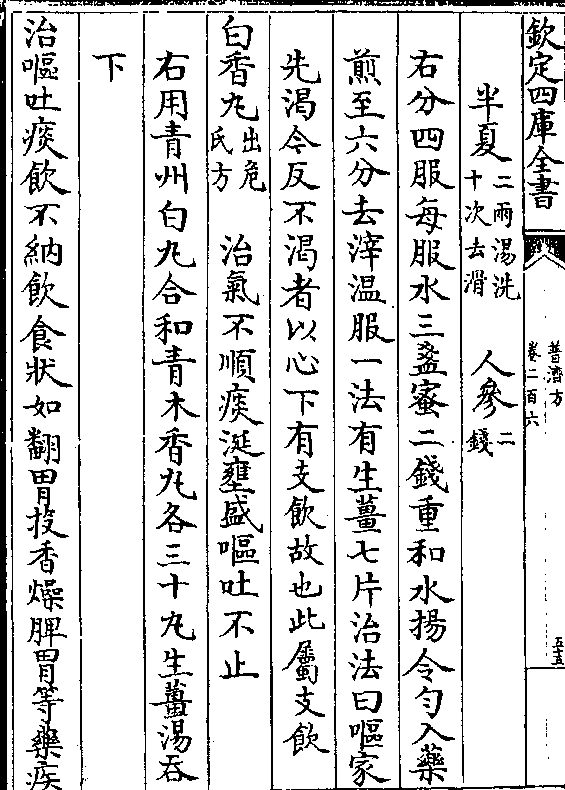 欽定四庫全書
普濟方
卷二百六
五五
半夏二兩湯洗十次去滑 人參二錢
右分四服每服水三盞蜜二錢重和水揚令勻入藥
煎至六分去滓温服一法有生薑七片治法曰嘔家
先渴今反不渴者以心下有支飲故也此屬支飲
白香丸出危氏方 治氣不順痰涎壅盛嘔吐不止
右用青州白丸合和青木香丸各三十丸生薑湯吞
下
治嘔吐痰飲不納飲食狀如翻胃投香燥脾胃等藥疾